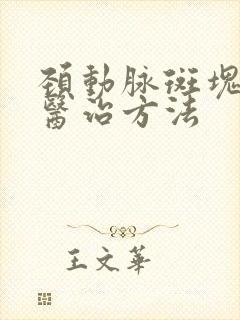 頚動脉斑塊
醫治方法
王文華